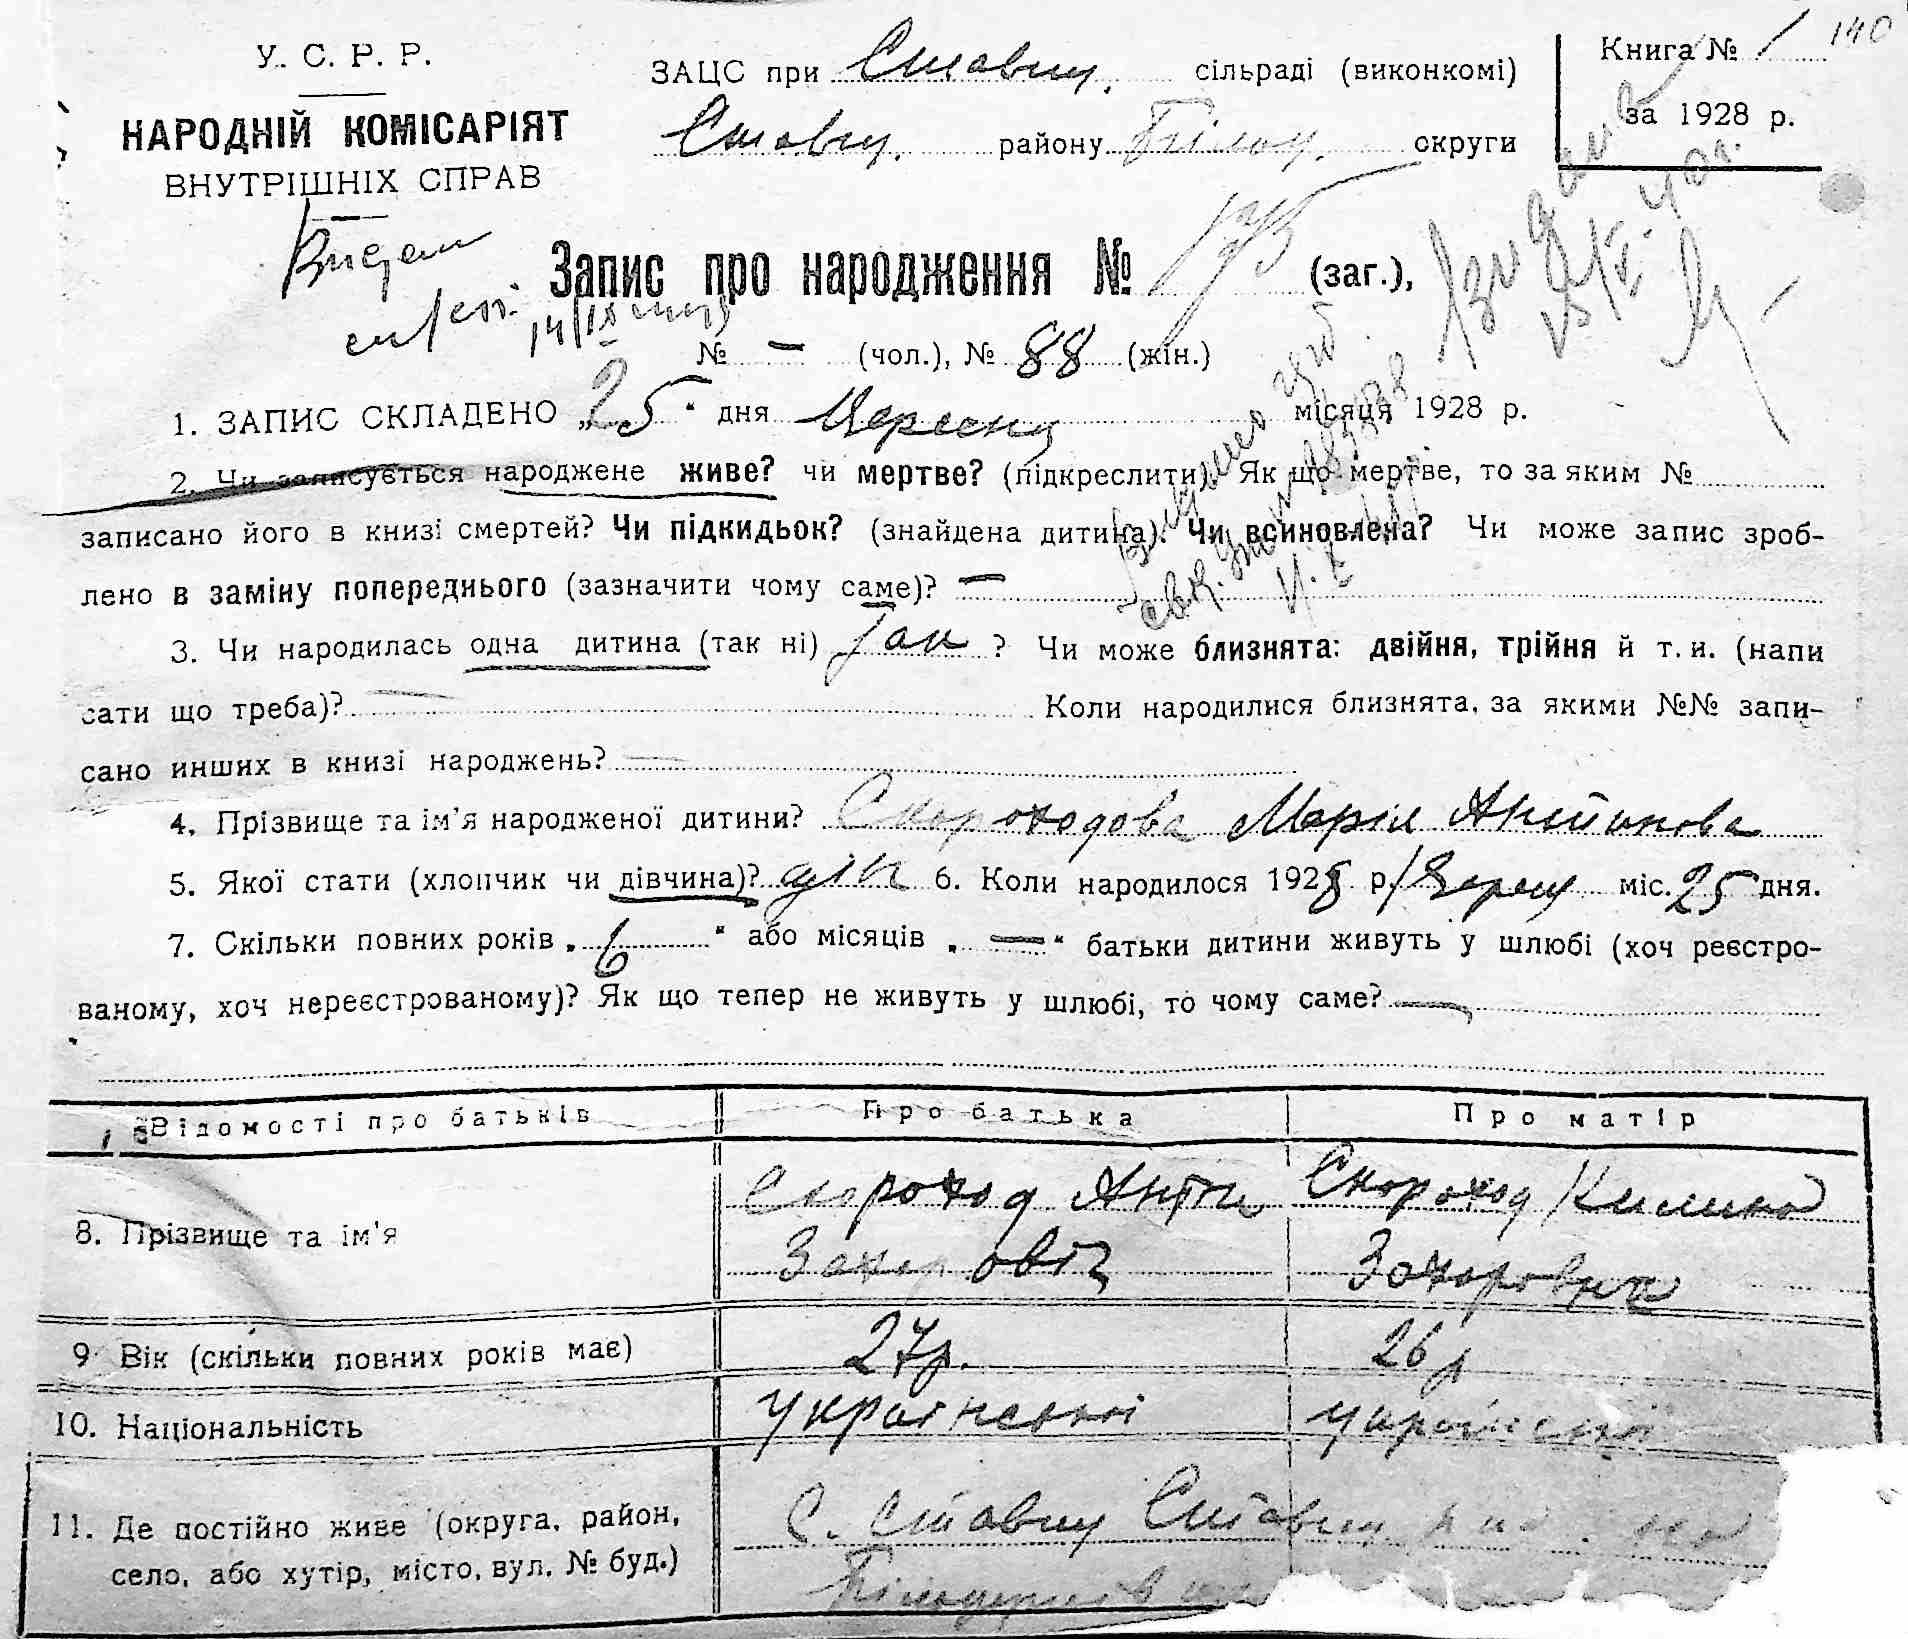 140
У. С. Р. Р.
НАРОДНІЙ КОМІСАРІЯТ
ВНУТРІШНІХ СПРАВ
ЗАЦС при Ставищ. сільраді (виконкомі)
Ставищ. району Білоц. округи
Книга № 1
за 1928 р.
Запис про народження № 175 (заг.),
№ — (чол.), № 88 (жін.)
1. ЗАПИС СКЛАДЕНО „25“ дня Вересня місяця 1928 р.
2. Чи записується народжене живе? чи мертве? (підкреслити). Як що мертве, то за яким №
записано його в книзі смертей? Чи підкидьок? (знайдена дитина). Чи всиновлена? Чи може запис зроб-
лено в заміну попереднього (зазначити чому саме)? —
3. Чи народилась одна дитина (так ні) Так ? Чи може близнята: двійня, трійня й т. и. (напи
сати що треба)? Коли народилися близнята, за якими №№ запи-
сано инших в книзі народжень? —
4. Прізвище та ім'я народженої дитини? Скороходова Марія Антипова
5. Якої стати (хлопчик чи дівчина)? дів 6. Коли народилося 1928 р. Верес міс. 25 дня.
7. Скільки повних років „6“ або місяців „—“ батьки дитини живуть у шлюбі (хоч реєстро-
ваному, хоч нереєстрованому)? Як що тепер не живуть у шлюбі, то чому саме? —
Відомості про батьків Про батька Про матір
8. Прізвище та ім'я Скороход Антип Скороход Килина
Захарович Захаровна
9 Вік (скільки повних років має) 27р. 26 р
10. Національність Українські українські
11. Де постійно живе (округа, район, С. Ставищ Ставищ
село, або хутір, місто, вул. № буд.)